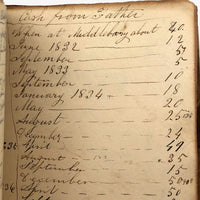 Cash from Father
taken at Middlebury about 40
June 1832 12
September 5
May 1833 5
September 10
January 1834 18
May 20
August 25
December 24
April 49
August 25
September 15
December 50
April 50